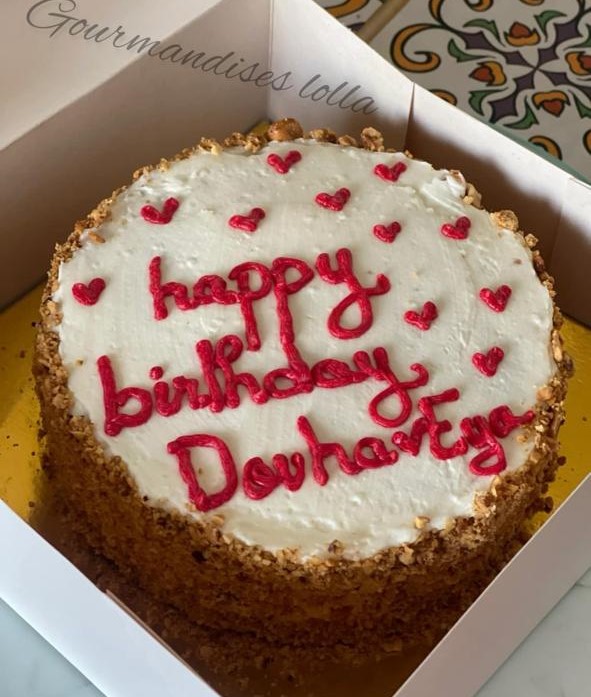 Gourmandises lolla
happy
birthday
Douha♥Eya